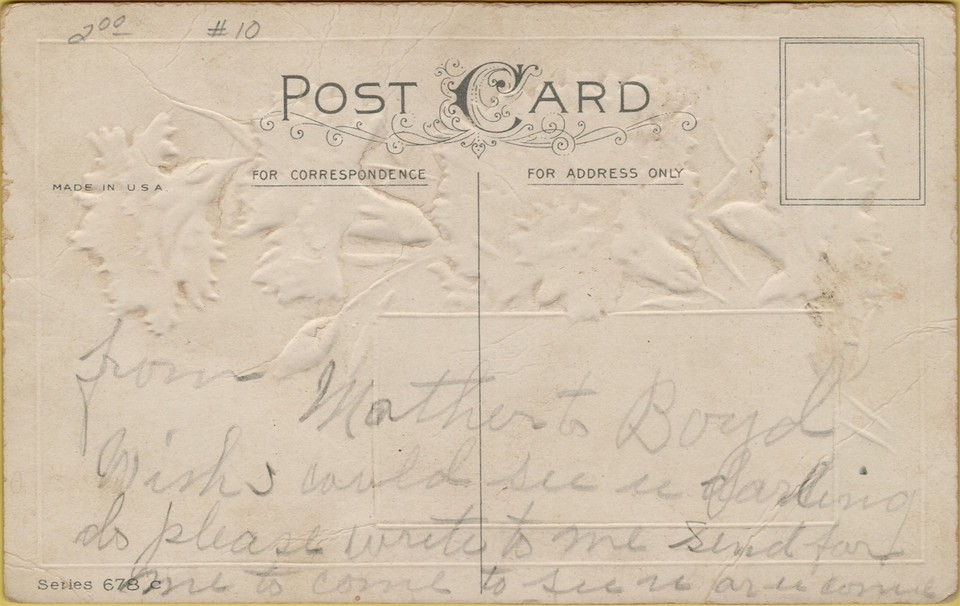 2.00 #10
POST CARD
FOR CORRESPONDENCE FOR ADDRESS ONLY
MADE IN U.S.A.
from Mother to Boyd
Wish could see u darling
do please write to me send for
me to come to see u or u come
Series 678 C